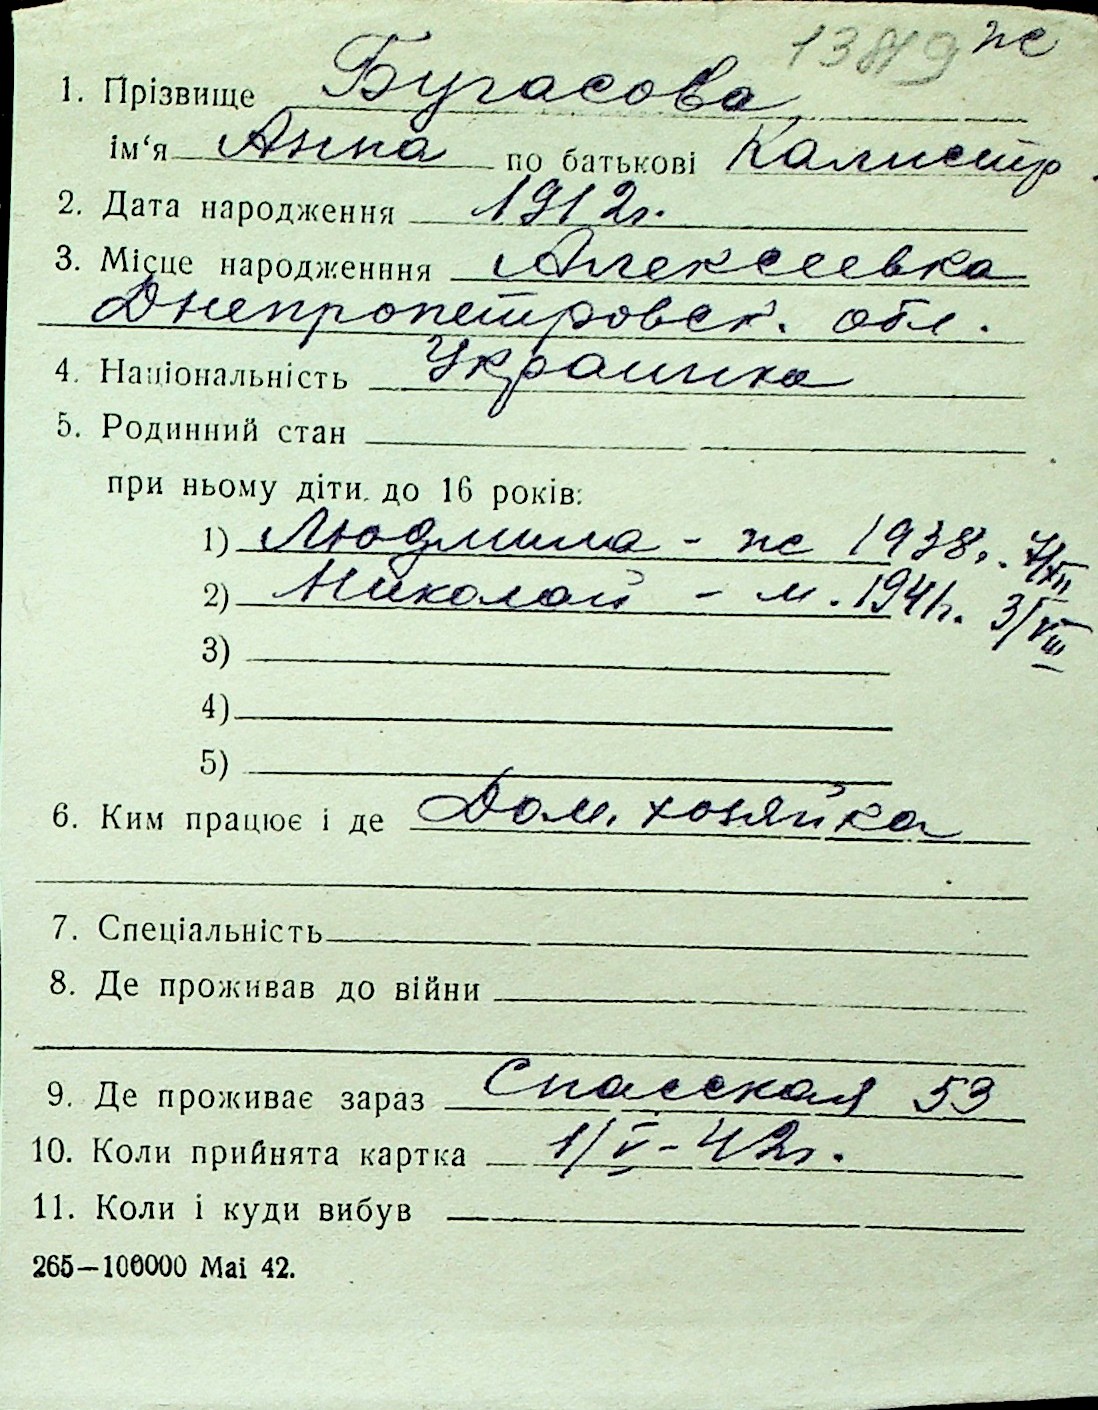 ж
1. Прізвище Бугасова
ім‘я Анна по батькові Калистр.
2. Дата народження 1912г.
3. Місце народженння Алексеевка
Днепропетровск. обл.
4. Національність Украинка
5. Родинний стан
при ньому діти до 16 років:
1) Людмила - ж 1938г. 7/XII
2) Николай - м. 1941г. 3/VIII
3)
4)
5)
6. Ким працює і де Дом. хозяйка
7. Спеціальність
8. Де проживав до війни
9. Де проживає зараз Спасская 53
10. Коли прийнята картка 1/V-42г.
11. Коли і куди вибув
265—100000 Mai 42.